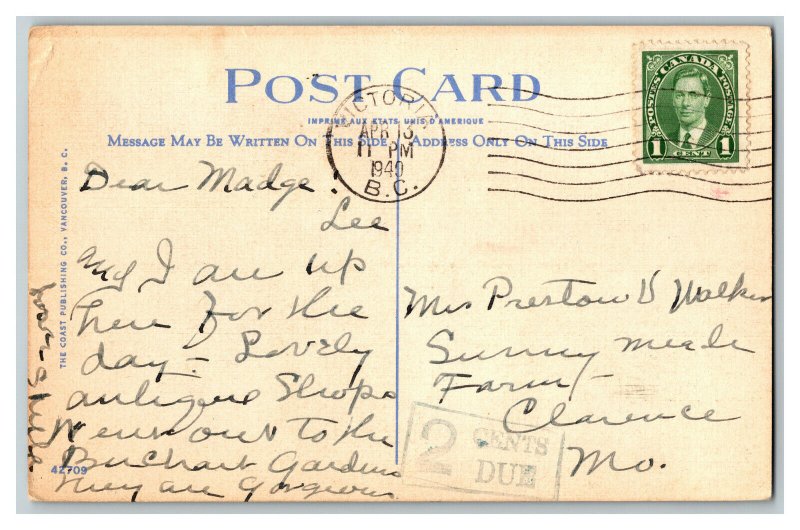 POST CARD
IMPRIME AUX ETATS UNIS D'AMERIQUE
MESSAGE MAY BE WRITTEN ON THIS SIDE
ADDRESS ONLY ON THIS SIDE
VICTORIA
APR 13
11 PM
1940
B.C.
POSTES CANADA POSTAGE
1 CENT 1
Dear Madge!
Lee
and I are up
here for the
day - Lovely
antique Shops
Went out to the
Buchart Gardens
They are Gorgeous
Mrs Preston W Walker
Sunny meade
Farm -
Clarence
Mo.
2 CENTS
DUE
THE COAST PUBLISHING CO., VANCOUVER, B. C.
42709